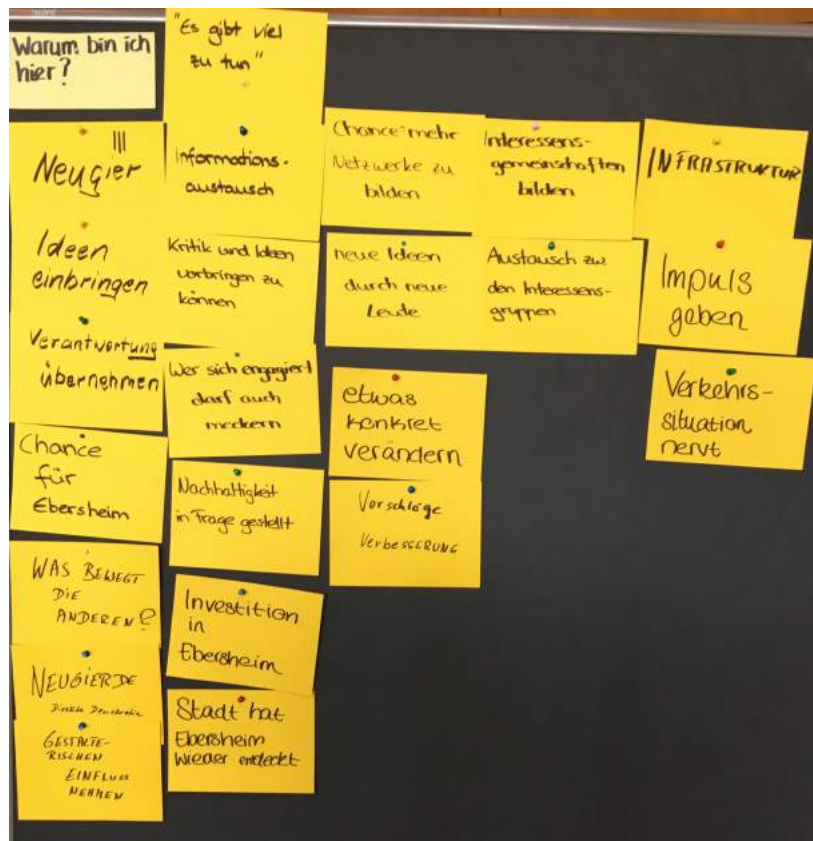 Warum bin ich
hier?
"Es gibt viel
zu tun"
Neugier
Ideen
einbringen
Verantwortung
übernehmen
Chance
für
Ebersheim
WAS BEWEGT
DIE
ANDEREN?
NEUGIERDE
Direkte Demokratie
GESTALTE-
RISCHEN
EINFLUSS
NEHMEN
Informations-
austausch
Kritik und Ideen
vorbringen zu
können
Wer sich engagiert
darf auch
meckern
Nachhaltigkeit
in Frage gestellt
Investition
in
Ebersheim
Stadt hat
Ebersheim
wieder entdeckt
Chance mehr
Netzwerke zu
bilden
neue Ideen
durch neue
Leute
etwas
konkret
verändern
Vorschläge
VERBESSERUNG
Interessens-
gemeinschaften
bilden
Austausch zw.
den Interessens-
gruppen
INFRASTRUKTUR
Impuls
geben
Verkehrs-
situation
nervt